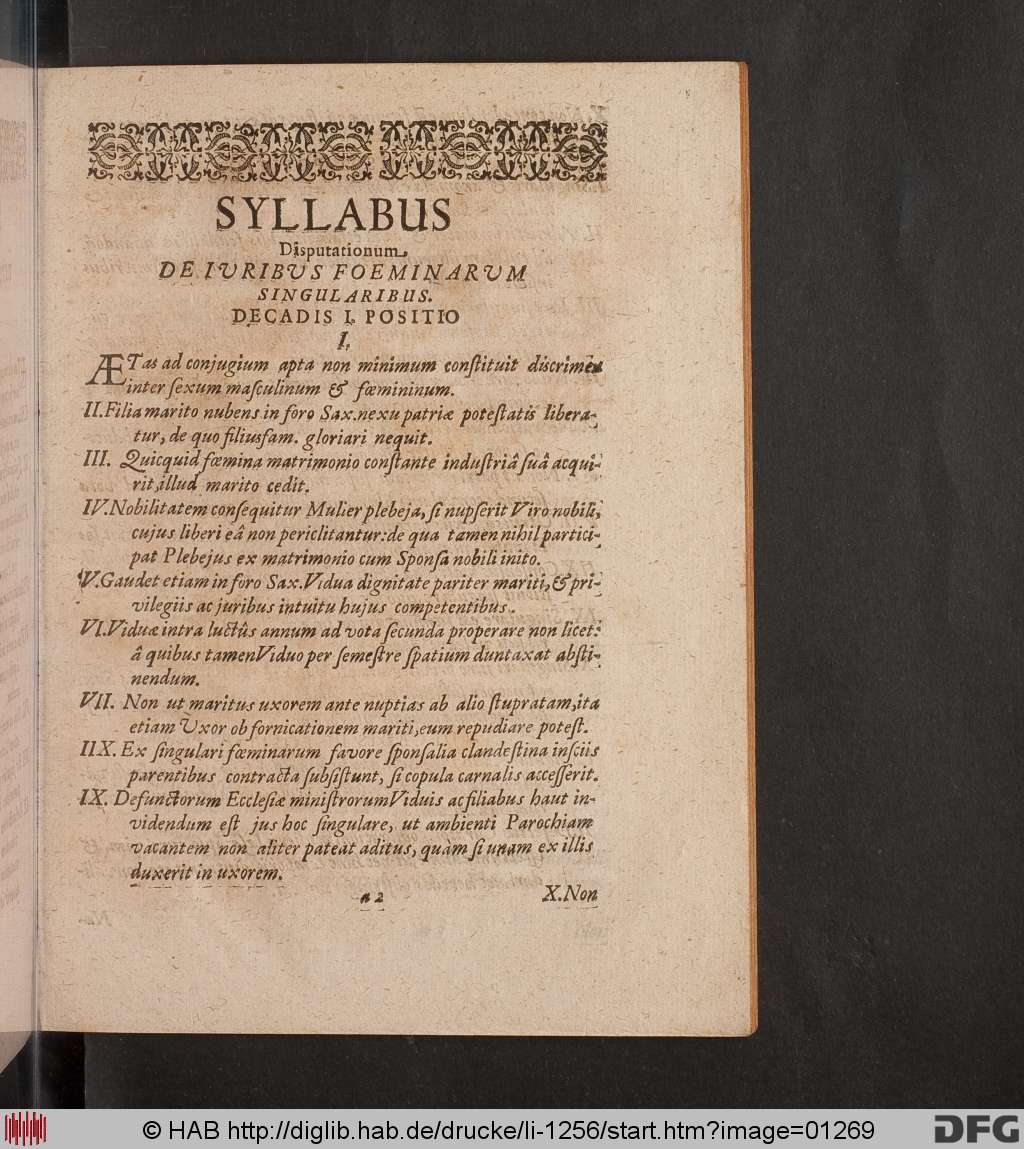 SYLLABUS
Disputationum
DE IVRIBVS FOEMINARUM
SINGULARIBUS.
DECADIS I. POSITIO
I.
ÆTas ad conjugium apta non minimum conſtituit diſcrimen
inter ſexum maſculinum & fœmininum.
II. Filia marito nubens in foro Sax. nexu patriæ poteſtatis libera-
tur, de quo filiusfam. gloriari nequit.
III. Quicquid fœmina matrimonio conſtante induſtriâ ſuâ acqui-
rit, illud marito cedit.
IV. Nobilitatem conſequitur Mulier plebeja, ſi nupſerit Viro nobili,
cujus liberi eâ non periclitantur: de qua tamen nihil partici-
pat Plebejus ex matrimonio cum Sponſa nobili inito.
V. Gaudet etiam in foro Sax. Vidua dignitate pariter mariti, & pri-
vilegiis ac juribus intuitu hujus competentibus.
VI. Viduæ intra luctûs annum ad vota ſecunda properare non licet:
â quibus tamen Viduo per ſemeſtre ſpatium duntaxat abſti-
nendum.
VII. Non ut maritus uxorem ante nuptias ab alio ſtupratam, ita
etiam Uxor ob fornicationem mariti, eum repudiare poteſt.
IIX. Ex ſingulari fœminarum favore ſponſalia clandeſtina inſciis
parentibus contracta ſubſiſtunt, ſi copula carnalis acceſſerit.
IX. Defunctorum Eccleſiæ miniſtrorum Viduis ac filiabus haut in-
videndum eſt jus hoc ſingulare, ut ambienti Parochiam
vacantem non aliter pateat aditus, quàm ſi unam ex illis
duxerit in uxorem.
a 2 X. Non
© HAB http://diglib.hab.de/drucke/li-1256/start.htm?image=01269
DFG